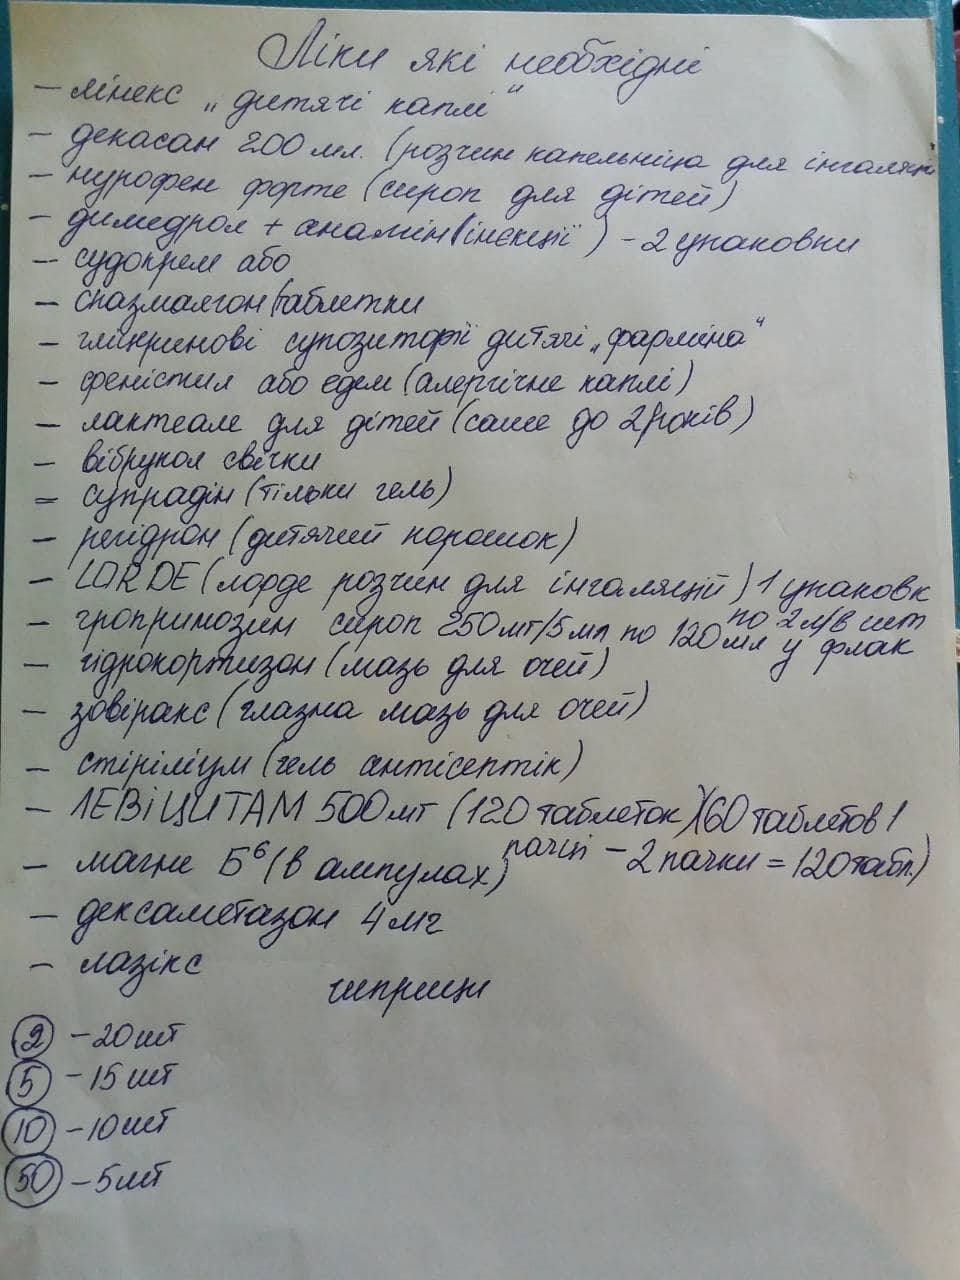 Ліки які необхідні
- лінекс „дитячі каплі"
- декасан 200 мл. (розчин капельніца для інгаляци
- нурофен форте (сироп для дітей)
- димедрол + аналгін (інєкції) - 2 упаковки
- судокрем або
- спазмалгон (таблетки
- гліцеринові супозиторії дитячі „фарміна"
- феністил або едем (алергічне каплі)
- лактеале для дітей (саше до 2 років)
- вібрукол свічки
- супрадін (тільки гель)
- регідрон (дитячий порошок)
- LORDE (лорде розчин для інгаляцій) 1 упаковк
по 2 м/в шт
- гропримозин сироп 250мг/5мл по 120мл у флак
- гідрокортизон (мазь для очей)
- зовіракс (глазна мазь для очей)
- стіріліум (гель антісептік)
- ЛЕВІЦИТАМ 500мг (120 таблеток) (60 таблетов 1
пачці - 2 пачки = 120 табл.)
- магне Б6 (в ампулах)
- дексаметазон 4 мг
- лазікс
шприци
2 - 20 шт
5 - 15 шт
10 - 10 шт
50 - 5 шт